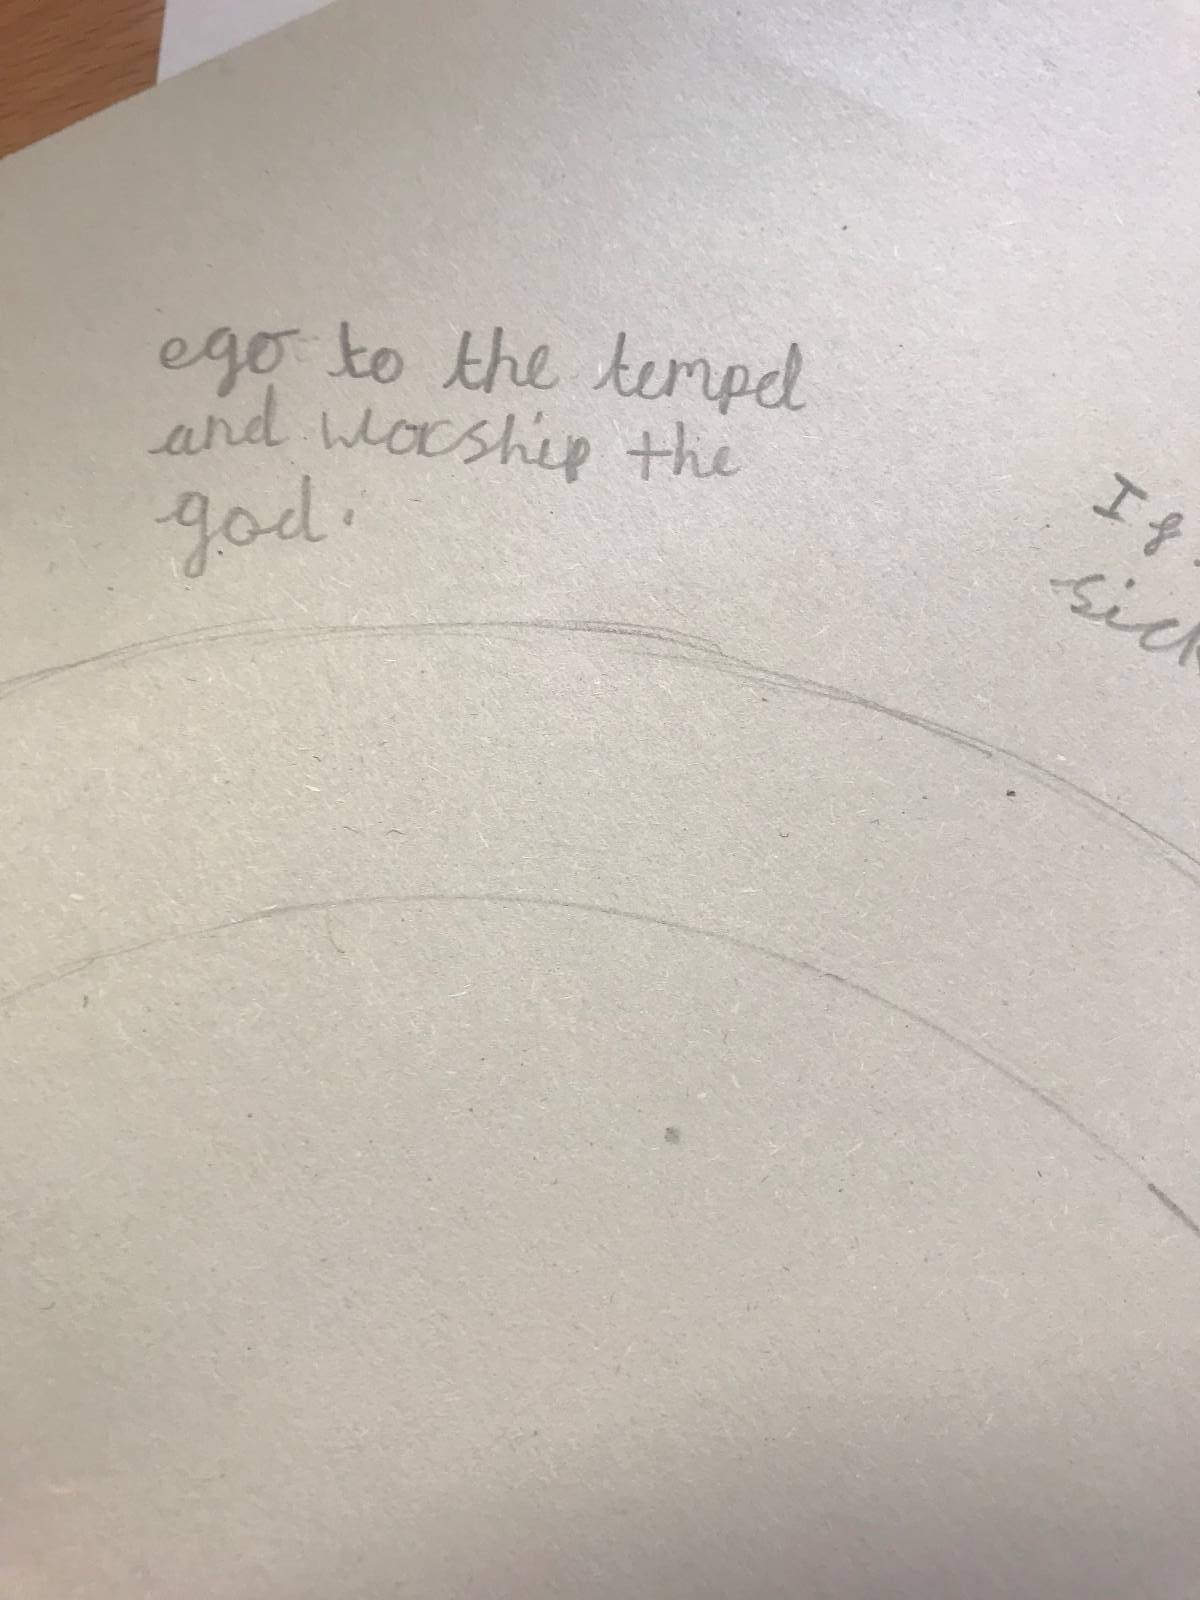 ego to the tempel
and worship the
god.
If
sick